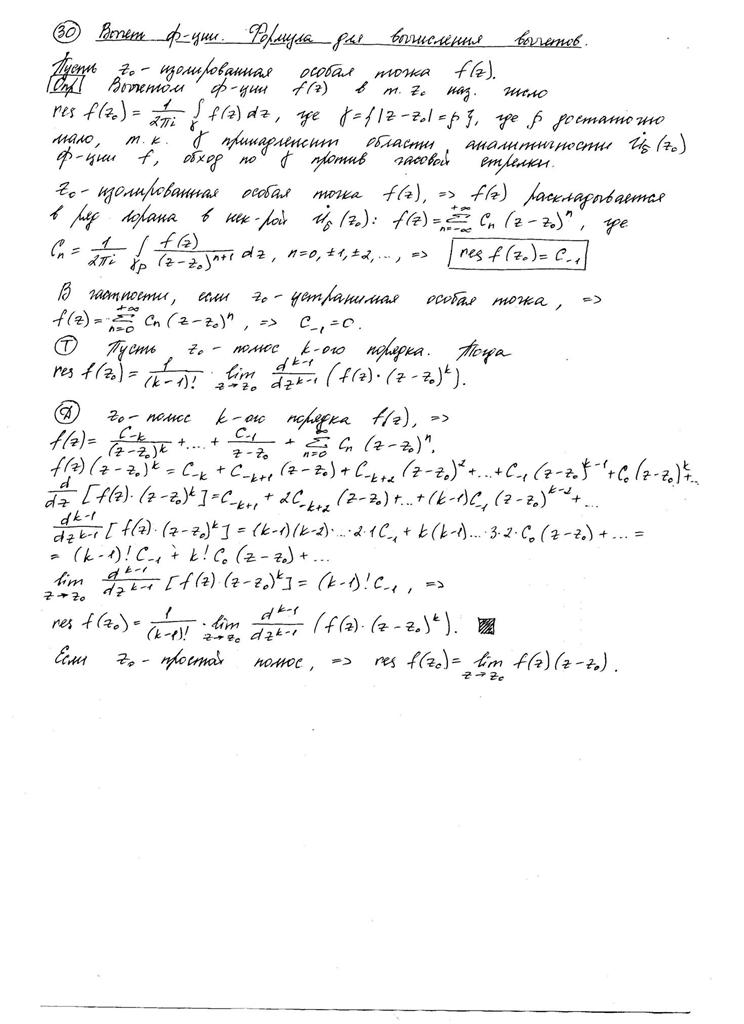 30 Вычет ф-ции. Формула для вычисления вычетов.
Пусть z₀ - изолированная особая точка f(z).
Опр Вычетом ф-ции f(z) в т. z₀ наз. число
res f(z₀) = 1/(2πi) ∫_γ f(z) dz, где γ = {|z - z₀| = ρ}, где ρ достаточно
мало, т.к. γ принадлежит области аналитичности U̇_δ(z₀)
ф-ции f, обход по γ против часовой стрелки.
z₀ - изолированная особая точка f(z), => f(z) раскладывается
в ряд Лорана в нек-рой U̇_δ(z₀): f(z) = Σ_{n=-∞}^{+∞} Cₙ (z - z₀)ⁿ, где
Cₙ = 1/(2πi) ∫_{γρ} f(z)/(z - z₀)ⁿ⁺¹ dz, n = 0, ±1, ±2, ..., => res f(z₀) = C₋₁
В частности, если z₀ - устранимая особая точка, =>
f(z) = Σ_{n=0}^{+∞} Cₙ (z - z₀)ⁿ, => C₋₁ = 0.
Т Пусть z₀ - полюс k-ого порядка. Тогда
res f(z₀) = 1/(k-1)! · lim_{z→z₀} d^{k-1}/dz^{k-1} (f(z)·(z - z₀)^k).
Д z₀ - полюс k-ого порядка f(z), =>
f(z) = C₋ₖ/(z - z₀)^k + ... + C₋₁/(z - z₀) + Σ_{n=0}^{∞} Cₙ (z - z₀)ⁿ,
f(z)(z - z₀)^k = C₋ₖ + C₋ₖ₊₁ (z - z₀) + C₋ₖ₊₂ (z - z₀)² + ... + C₋₁ (z - z₀)^{k-1} + C₀ (z - z₀)^k + ...
d/dz [f(z)·(z - z₀)^k] = C₋ₖ₊₁ + 2C₋ₖ₊₂ (z - z₀) + ... + (k-1)C₋₁ (z - z₀)^{k-2} + ...
d^{k-1}/dz^{k-1} [f(z)·(z - z₀)^k] = (k-1)(k-2)·...·2·1 C₋₁ + k(k-1)...3·2·C₀ (z - z₀) + ... =
= (k-1)! C₋₁ + k! C₀ (z - z₀) + ...
lim_{z→z₀} d^{k-1}/dz^{k-1} [f(z)·(z - z₀)^k] = (k-1)! C₋₁, =>
res f(z₀) = 1/(k-1)! · lim_{z→z₀} d^{k-1}/dz^{k-1} (f(z)·(z - z₀)^k).
Если z₀ - простой полюс, => res f(z₀) = lim_{z→z₀} f(z)(z - z₀).